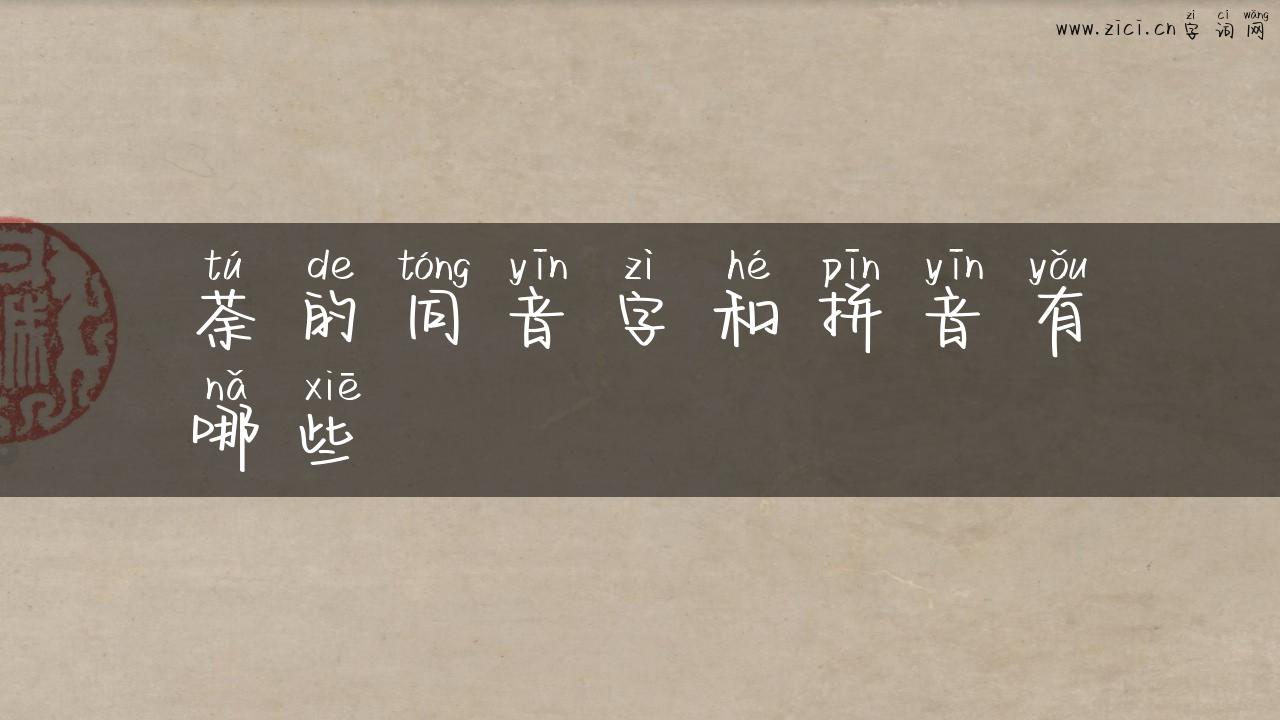 www.zici.cn 字词网
zì cí wǎng
tú de tóng yīn zì hé pīn yīn yǒu
荼的同音字和拼音有
nǎ xiē
哪些